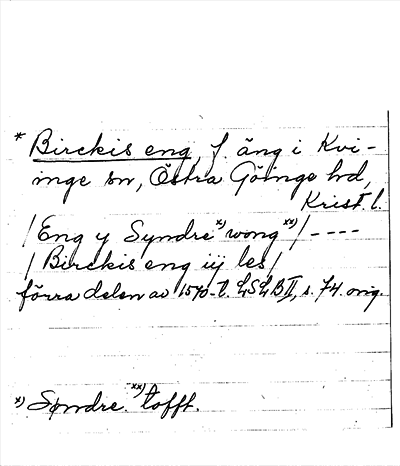 * Birckis eng, f. äng i Kvi-
inge sn, Östra Göinge hd,
Krist. l.
/Eng y Syndre x) wong xx)/ ----
/Birckis eng iij les/
förra delen av 1570-t. LSLB II, s. 74 orig.
x) Søndre. xx) tofft.